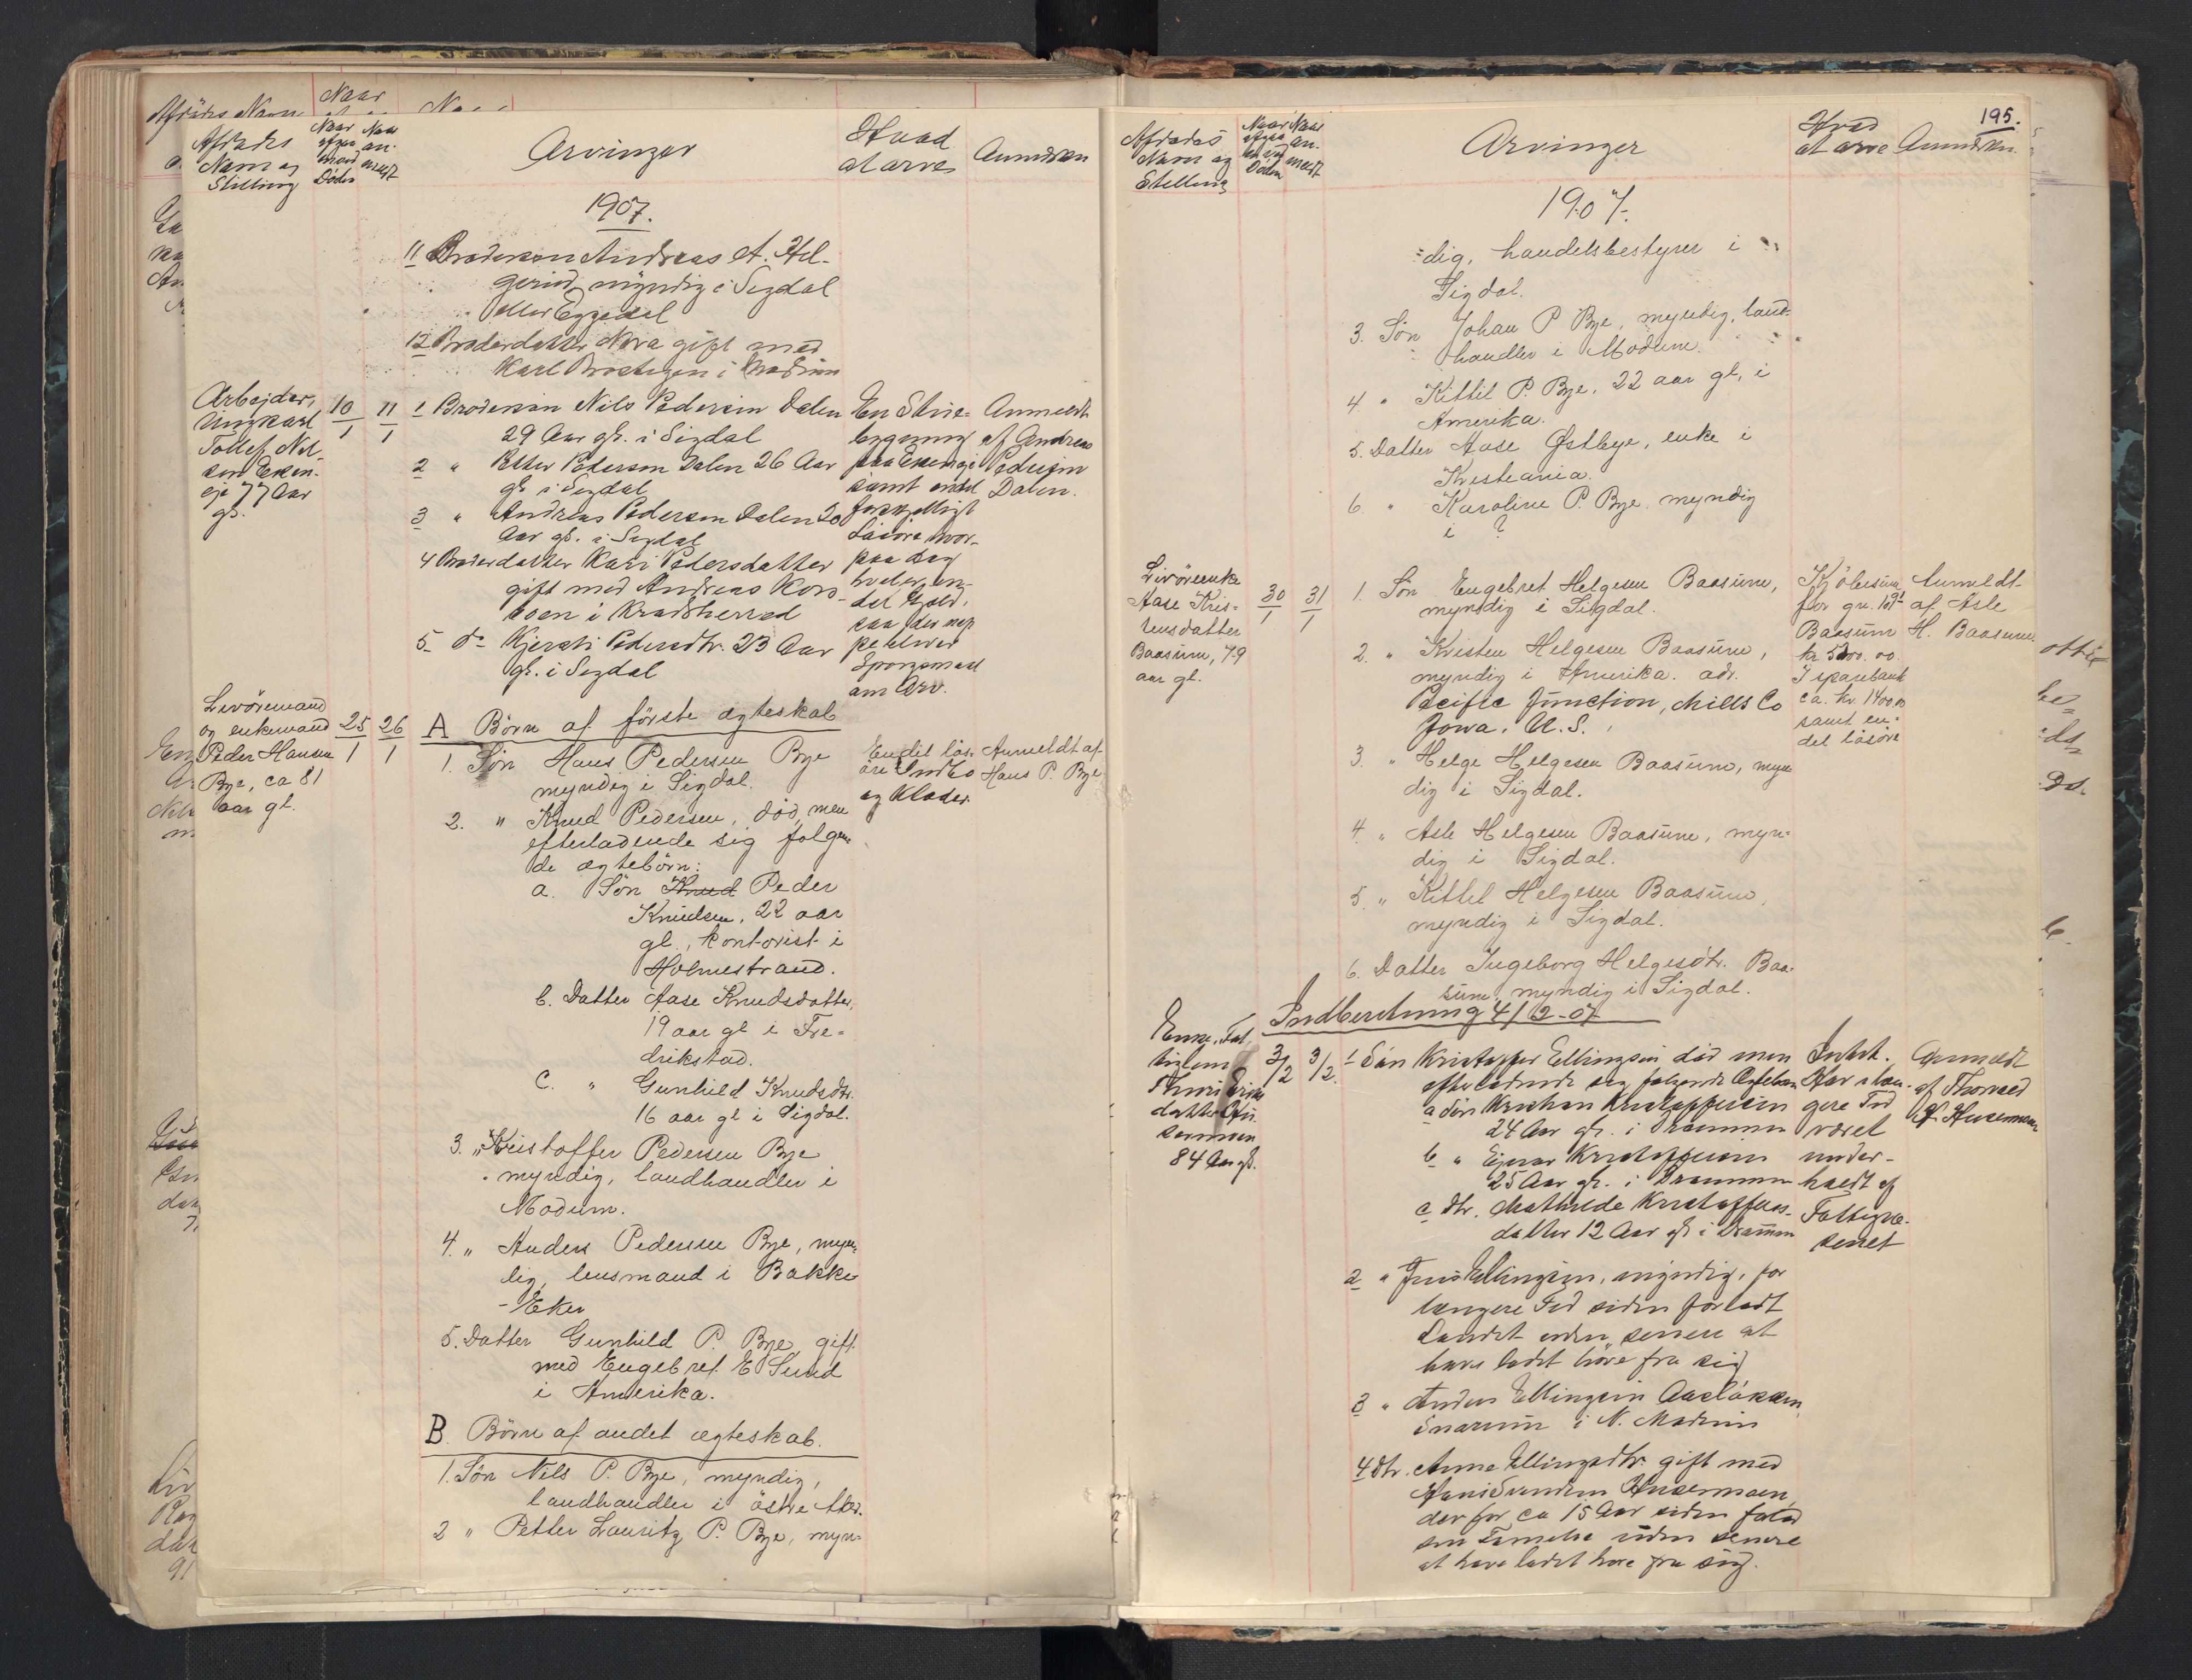 Afdødes
Navn og
Stilling
Naar
afgaa
en ved
Døden
Naar
an-
meldt
Arvinger
Hvad
at arve
Anmærkn
1907.
11 Brodersøn Andreas A. Hel-
gerud, myndig i Sigdal
eller Eggedal
12 Broderdatter Nora gift med
Karl Brostigen i Modum
Arbejder,
Ungkarl
Tollef Nil-
sen Eken-
eje 77 Aar
gl.
10/1 11/1
1 Brodersøn Nils Pedersen Dalen
29 Aar gl. i Sigdal
2 " Petter Pedersen Dalen 26 Aar
gl. i Sigdal
3 " Andreas Pedersen Dalen 20
Aar gl. i Sigdal
4 Broderdatter Kari Pedersdatter
gift med Andreas Kors-
boen i Kradsherred
5 do Kjersti Pedersdtr. 23 Aar
gl. i Sigdal
En Stue-
bygning
paa Ekeneje
samt endel
forskjelligt
Løsøre hvor-
paa dog
hviler en-
del Gjeld,
saa der nep-
pe bliver
Spørgsmaal
om Arv.
Anmeldt
af Andreas
Pedersen
Dalen.
Livöremand
og enkemand
Peder Hansen
Bye, ca 81
aar gl.
25/1 26/1
A Börn af förste ægteskab
1. Sön Hans Pedersen Bye
myndig i Sigdal.
2. " Knud Pedersen, död, men
efterladende sig følgen-
de ægtebörn:
a. Sön Knud Peder
Knudsen, 22 aar
gl., kontorist i
Holmestrand.
b. Datter Aase Knudsdatter,
19 aar gl i Fre-
drikstad.
c. " Gunhild Knudsdtr.
16 aar gl i Sigdal.
3. " Kristoffer Pedersen Bye
myndig, landhandler i
Modum.
4. " Anders Pedersen Bye, myn-
dig, lensmand i Bakke
- Eker
5. Datter Gunhild P. Bye, gift
med Engebret E Sund
i Amerika.
B Börn af andet ægteskab.
1. Sön Nils P. Bye, myndig,
landhandler i östre Aker.
2 " Petter Lauritz P. Bye, myn-
Endel lös-
öre Indbo
og Klæder.
Anmeldt af
Hans P. Bye
195.
Afdødes
Navn og
Stilling
Naar
afgaa
en ved
Døden
Naar
an-
meldt
Arvinger
Hvad
at arve
Anmærkn.
1907.
-dig, handelsbestyrer i
Sigdal.
3. Sön Johan P Bye, myndig, land-
handler i Modum.
4. " Kittil P. Bye, 22 aar gl, i
Amerika.
5. Datter Aase Østbye, enke i
Kristiania.
6. " Karoline P. Bye, myndig
i ?
Livöreenke
Aase Kris-
tensdatter
Baasum, 79
aar gl.
30/1 31/1
1. Sön Engebret Helgesen Baasum,
myndig i Sigdal.
2. " Kristen Helgesen Baasum,
myndig i Amerika. adr.
Pacific Junction, Mills Co
Jowa. U. S.
3. " Helge Helgesen Baasum, myn-
dig i Sigdal.
4. " Asle Helgesen Baasum, myn-
dig i Sigdal.
5. " Kittil Helgesen Baasum,
myndig i Sigdal.
6. Datter Ingeborg Helgesdtr. Baa-
sum, myndig i Sigdal.
Kjöbesum
for gn.
Baasum
I sparebank
ca. kr. 1400
samt en-
del lösöre
Anmeldt
af Asle
H. Baasum
Indberetning 4/2-07
Enke, Fat-
tiglem
84 Aar gl.
3/2 3/2.
1 Søn Kristoffer Ellingsen død men
efterladende sig følgende Ægtebørn
a Søn Kristian Kristoffersen
24 Aar gl. i Drammen
b " Ejnar Kristoffersen
25 Aar gl. i Drammen
c dtr. Mathilde Kristoffers-
datter 12 Aar gl i Drammen
2 " Jens Ellingsen, myndig, for
længere Tid siden forladt
Landet uden senere at
have ladet høre fra sig
3 " Anders Ellingsen Aasløkken
Snarum i N. Modum
4 dtr. Anne Ellingsdtr. gift med
Hans Svendsen Husermoen,
der for ca 15 Aar siden forlod
sin Familie uden senere
at have ladet høre fra sig.
Intet.
Har i læn-
gere Tid
været
under-
holdt af
Fattigvæ-
senet
Anmeldt
af Thorvald
H. Husermoen